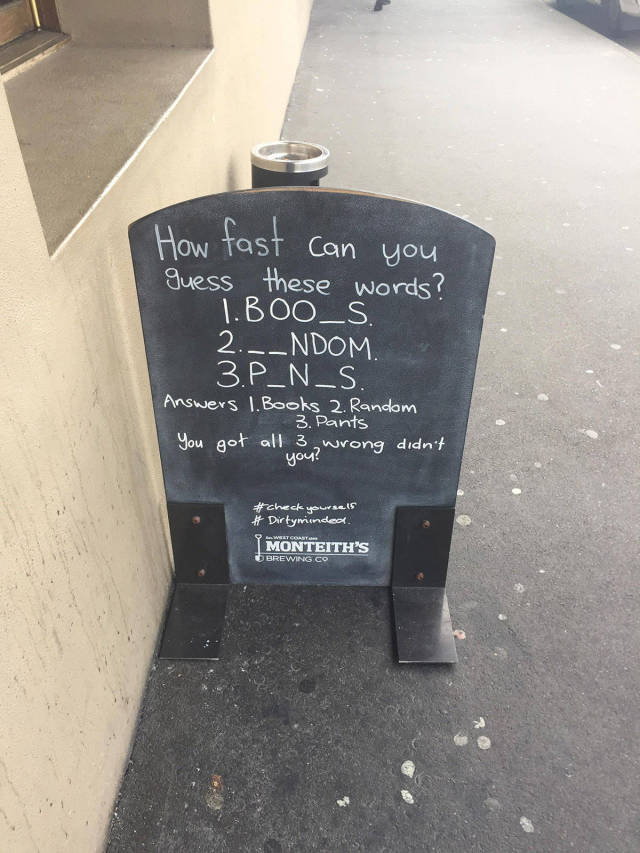 How fast can you
guess these words?
1. BOO_S.
2. __NDOM.
3. P_N_S.
Answers 1. Books 2. Random
3. Pants
You got all 3 wrong didn't
you?
#checkyourself
# Dirtyminded.
MONTEITH'S
BREWING Cº